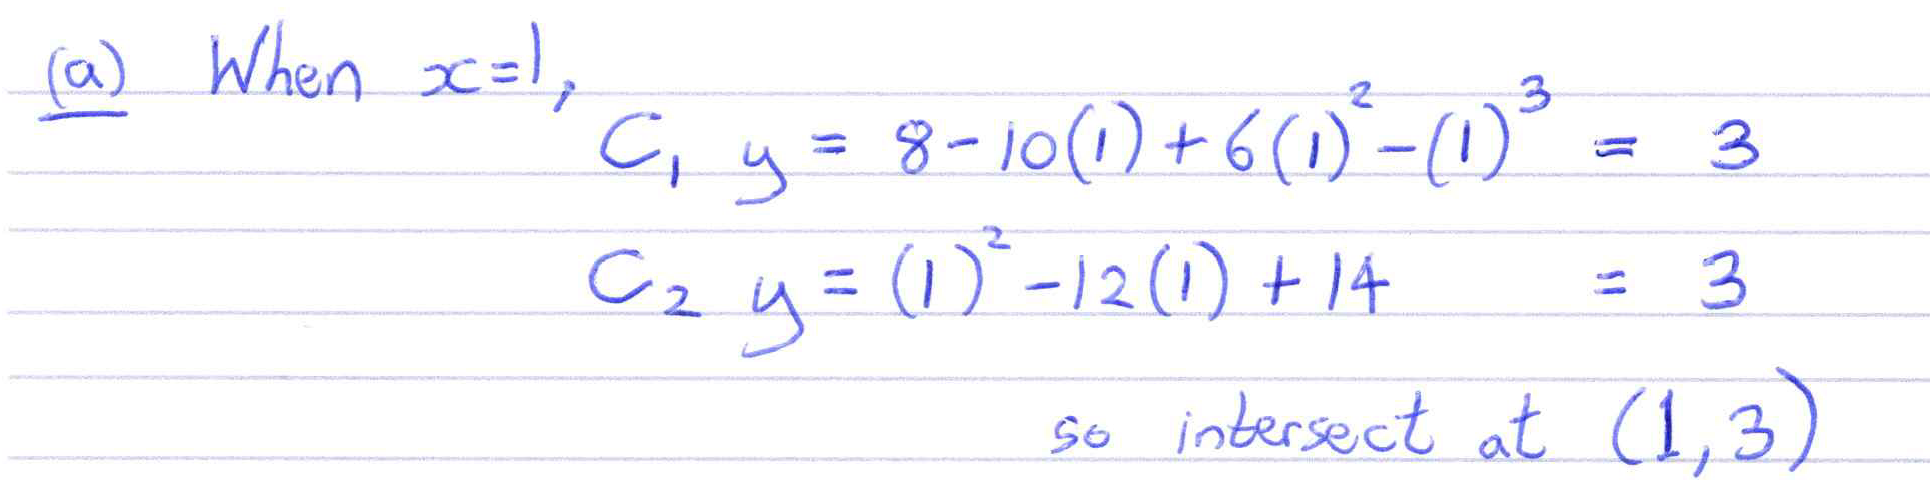 (a) When x=1,
C₁ y = 8-10(1)+6(1)²-(1)³ = 3
C₂ y = (1)²-12(1)+14 = 3
so intersect at (1,3)